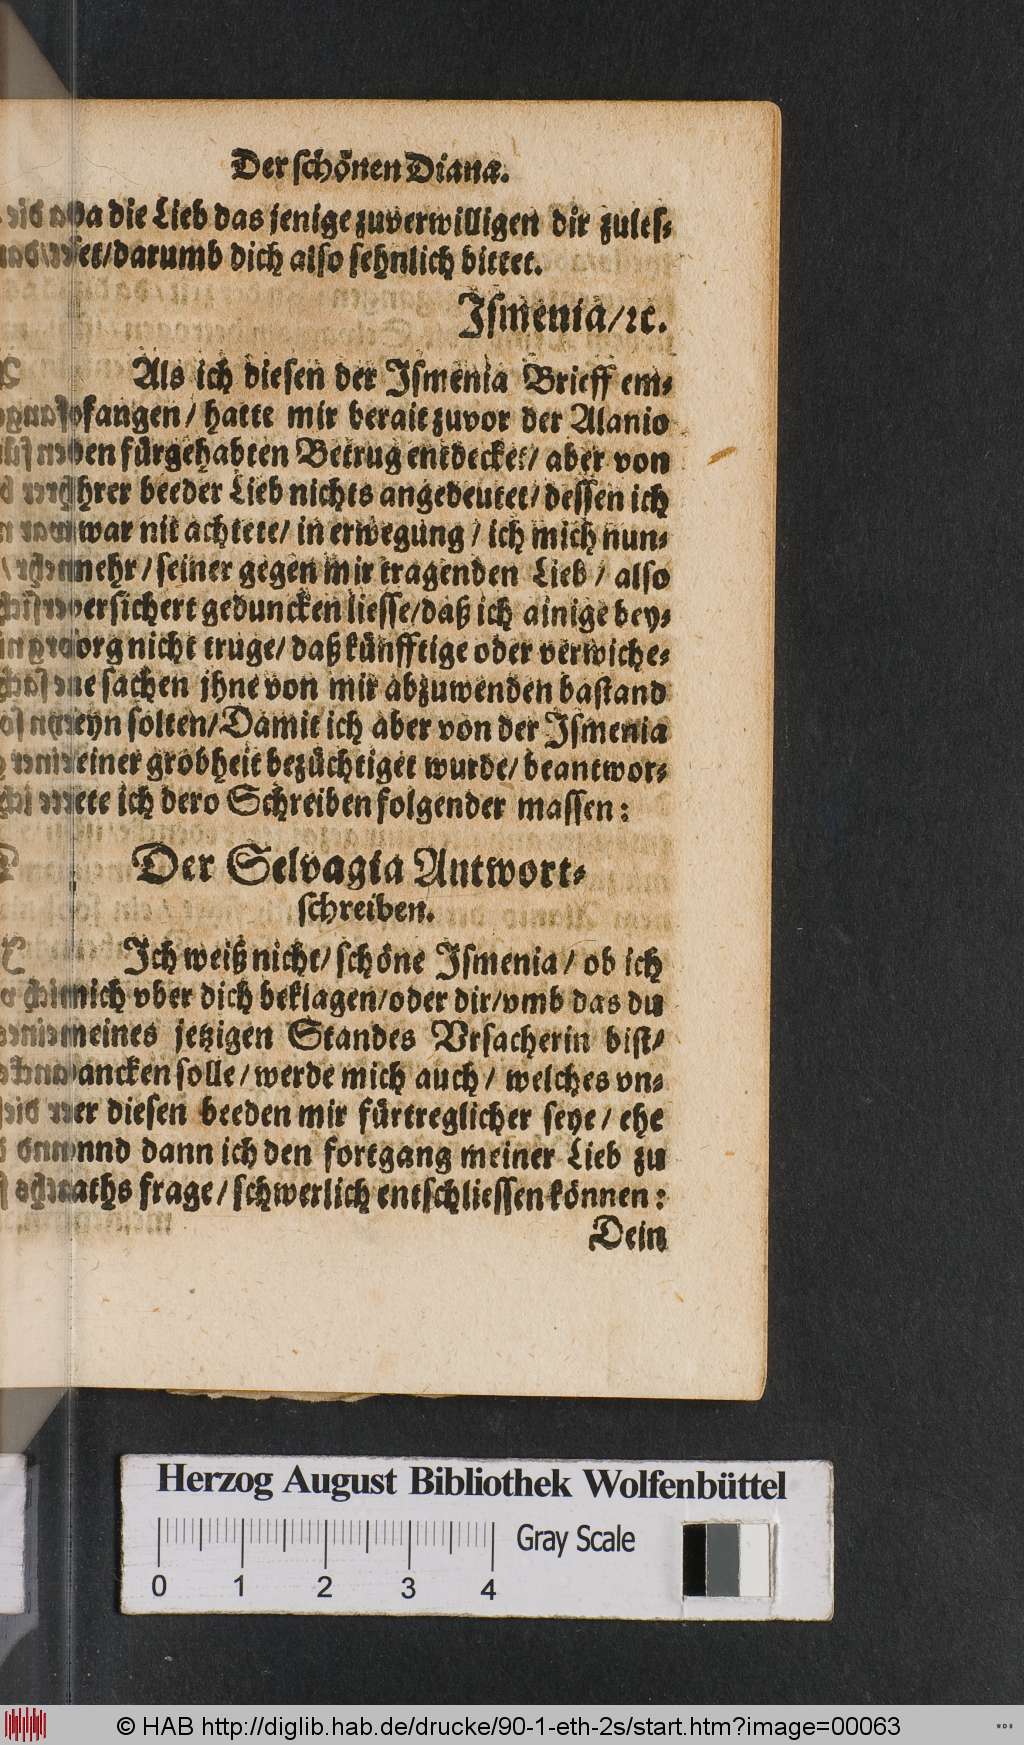 Der schönen Dianæ.
da die Lieb das jenige zuverwilligen dir zules⸗
set/darumb dich also sehnlich bittet.
Ismenia/ꝛc.
Als ich diesen der Ismenia Brieff em⸗
fangen/ hatte mir berait zuvor der Alanio
den fürgehabten Betrug entdecket/ aber von
jhrer beeder Lieb nichts angedeutet/ dessen ich
zwar nit achtete/ in erwegung / ich mich nun⸗
mehr/ seiner gegen mir tragenden Lieb / also
versichert geduncken liesse/daß ich ainige bey⸗
sorg nicht truge/ daß künfftige oder verwiche⸗
ne sachen jhne von mir abzuwenden bastand
seyn solten/Damit ich aber von der Ismenia
einer grobheit bezüchtiget wurde/ beantwor⸗
tete ich dero Schreiben folgender massen:
Der Selvagia Antwort⸗
schreiben.
Ich weiß nicht/ schöne Ismenia/ ob ich
mich vber dich beklagen/oder dir/vmb das du
meines jetzigen Standes Vrsacherin bist/
dancken solle/werde mich auch/ welches vn⸗
er diesen beeden mir fürtreglicher seye/ ehe
vnnd dann ich den fortgang meiner Lieb zu
raths frage/ schwerlich entschliessen können:
Dein
Herzog August Bibliothek Wolfenbüttel
Gray Scale
0 1 2 3 4
© HAB http://diglib.hab.de/drucke/90-1-eth-2s/start.htm?image=00063